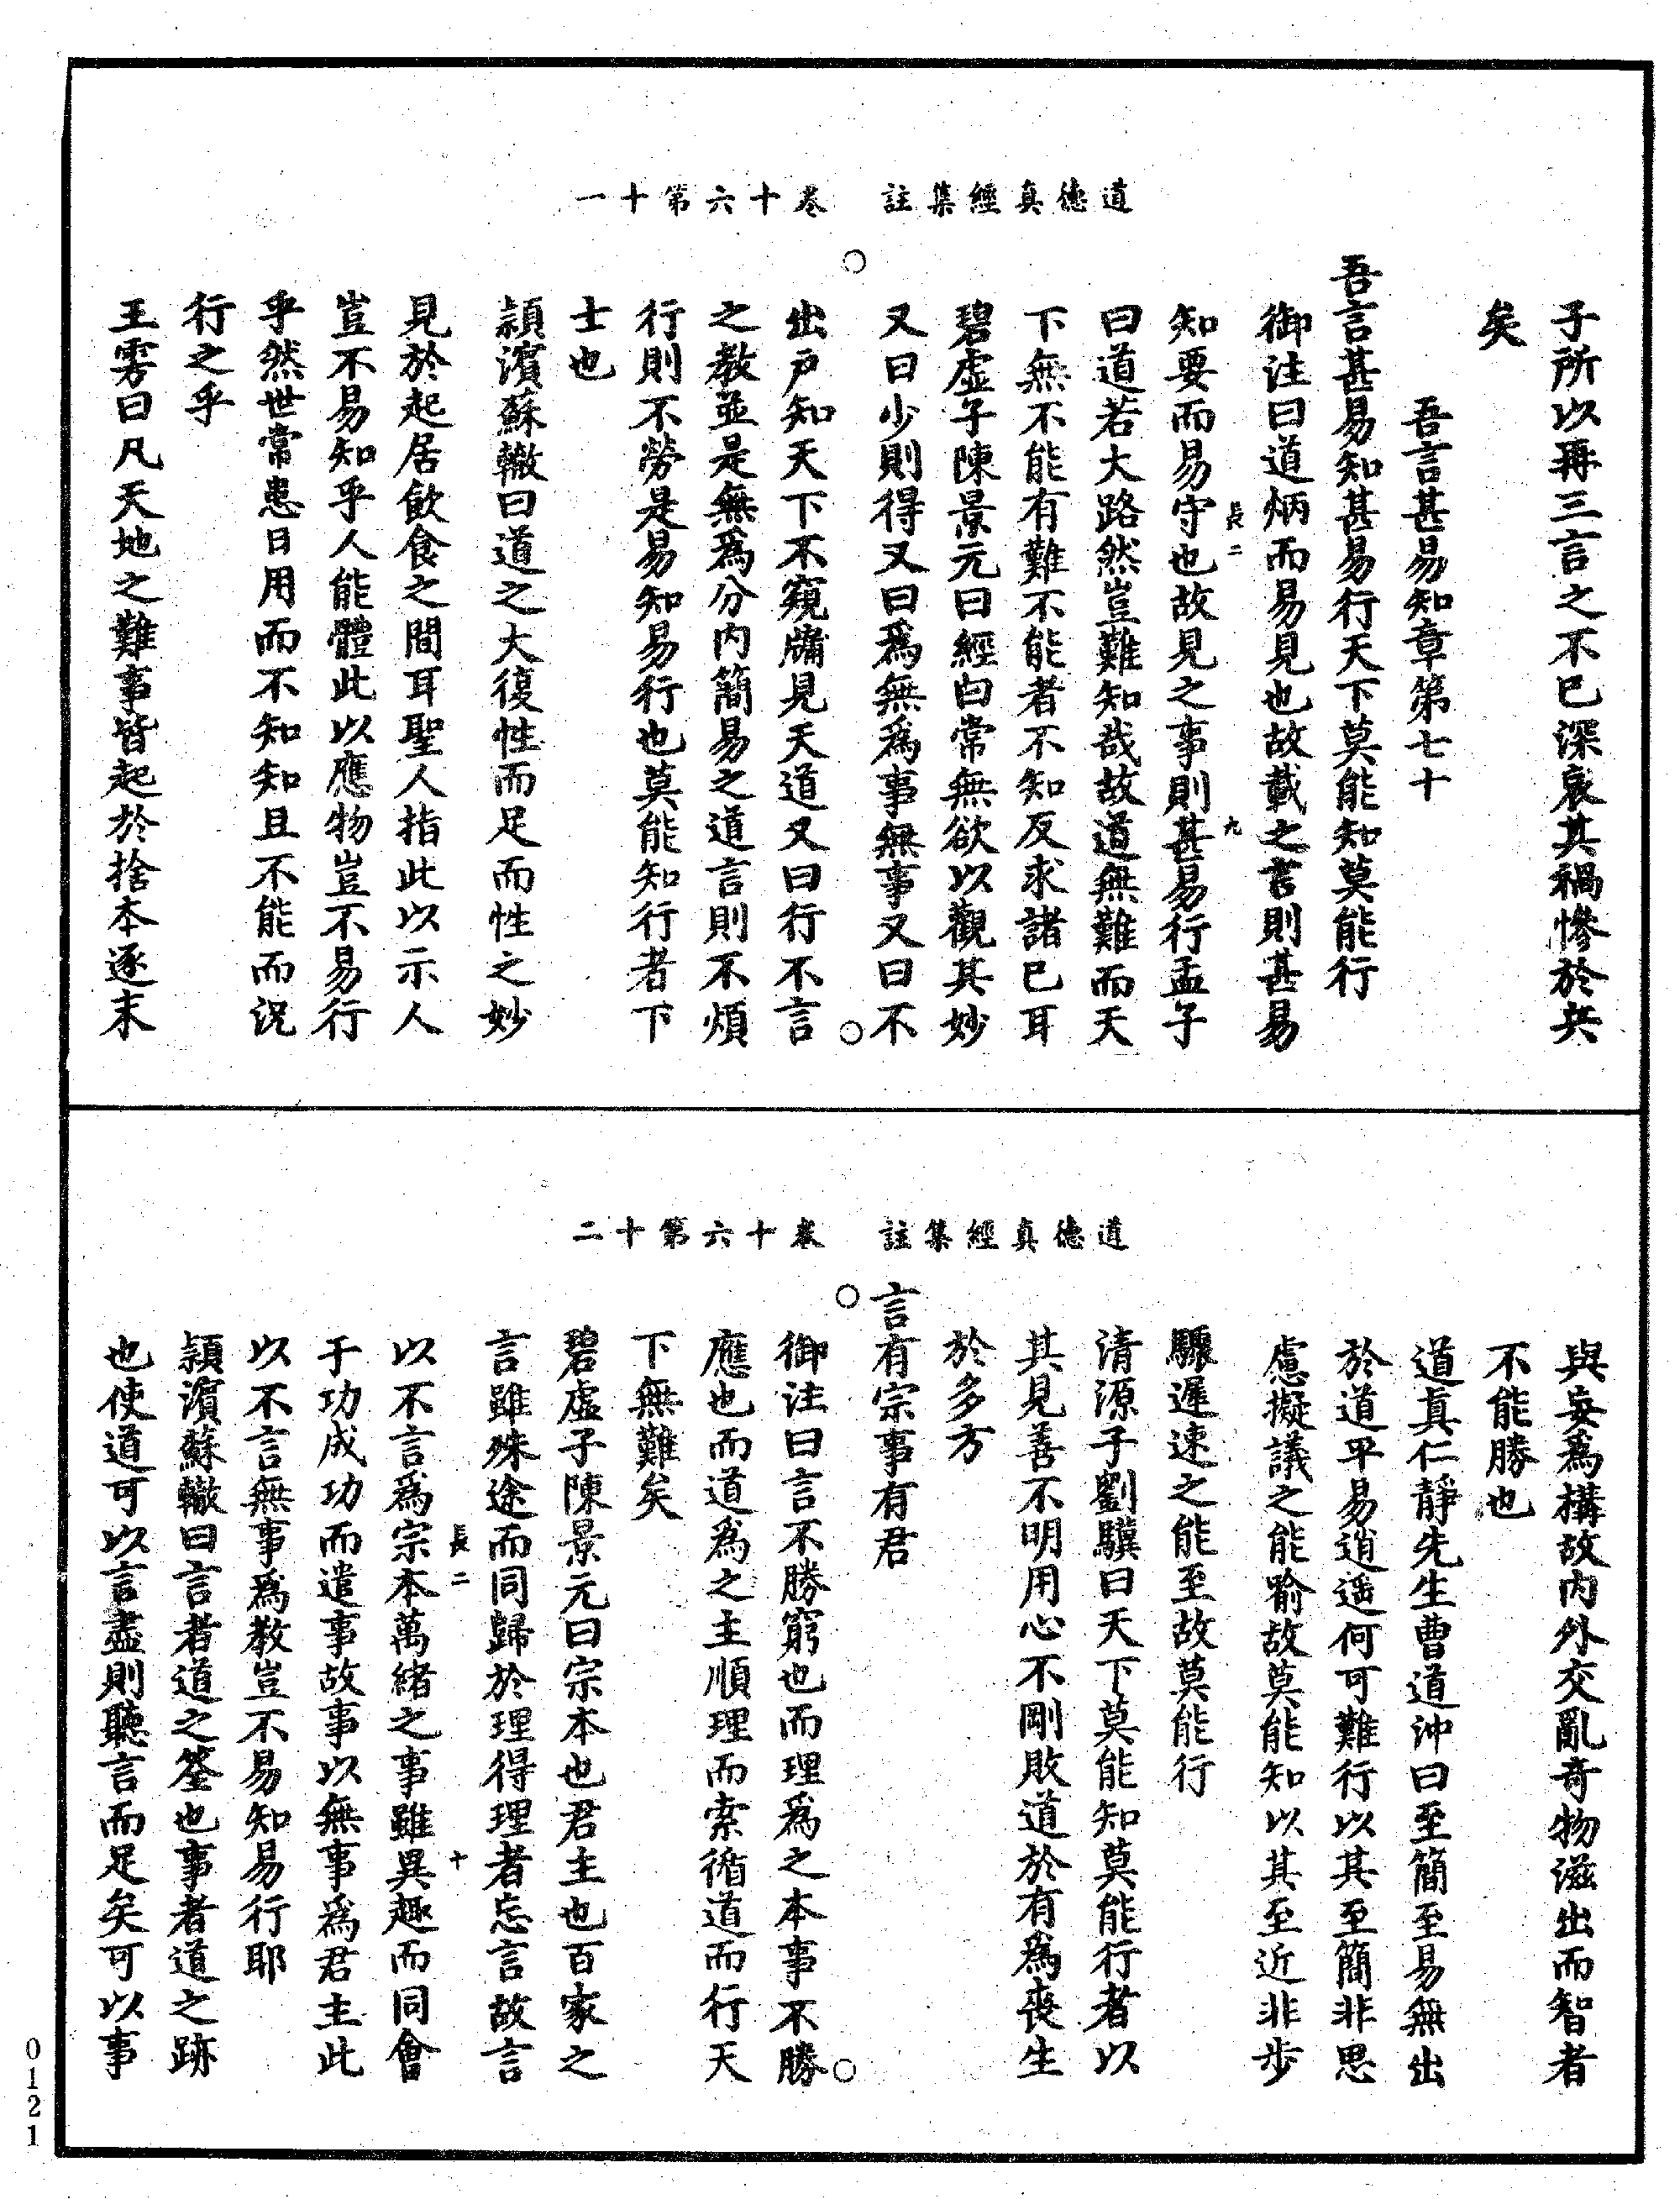 道德真經集註　卷十六第十一
子所以再三言之不已深哀其禍慘於兵
矣
吾言甚易知章第七十
吾言甚易知甚易行天下莫能知莫能行
御注曰道炳而易見也故載之言則甚易
長二　九
知要而易守也故見之事則甚易行孟子
曰道若大路然豈難知哉故道無難而天
下無不能有難不能者不知反求諸已耳
碧虛子陳景元曰經曰常無欲以觀其妙
又曰少則得又曰爲無爲事無事又曰不
出戶知天下不窺牖見天道又曰行不言
之教並是無爲分内簡易之道言則不煩
行則不勞是易知易行也莫能知行者下
士也
頴濱蘇轍曰道之大復性而足而性之妙
見於起居飲食之間耳聖人指此以示人
豈不易知乎人能體此以應物豈不易行
乎然世常患日用而不知知且不能而況
行之乎
王雱曰凡天地之難事皆起於捨本逐末
道德真經集註　卷十六第十二
與妄爲構故内外交亂奇物滋出而智者
不能勝也
道真仁靜先生曹道沖曰至簡至易無出
於道平易逍遥何可難行以其至簡非思
慮擬議之能喻故莫能知以其至近非步
驟遲速之能至故莫能行
清源子劉驥曰天下莫能知莫能行者以
其見善不明用心不剛敗道於有爲喪生
於多方
言有宗事有君
御注曰言不勝窮也而理爲之本事不勝
應也而道爲之主順理而索循道而行天
下無難矣
碧虛子陳景元曰宗本也君主也百家之
言雖殊途而同歸於理得理者忘言故言
長二　十
以不言爲宗本萬緒之事雖異趣而同會
于功成功而遣事故事以無事爲君主此
以不言無事爲教豈不易知易行耶
頴濱蘇轍曰言者道之筌也事者道之跡
也使道可以言盡則聽言而足矣可以事
0121